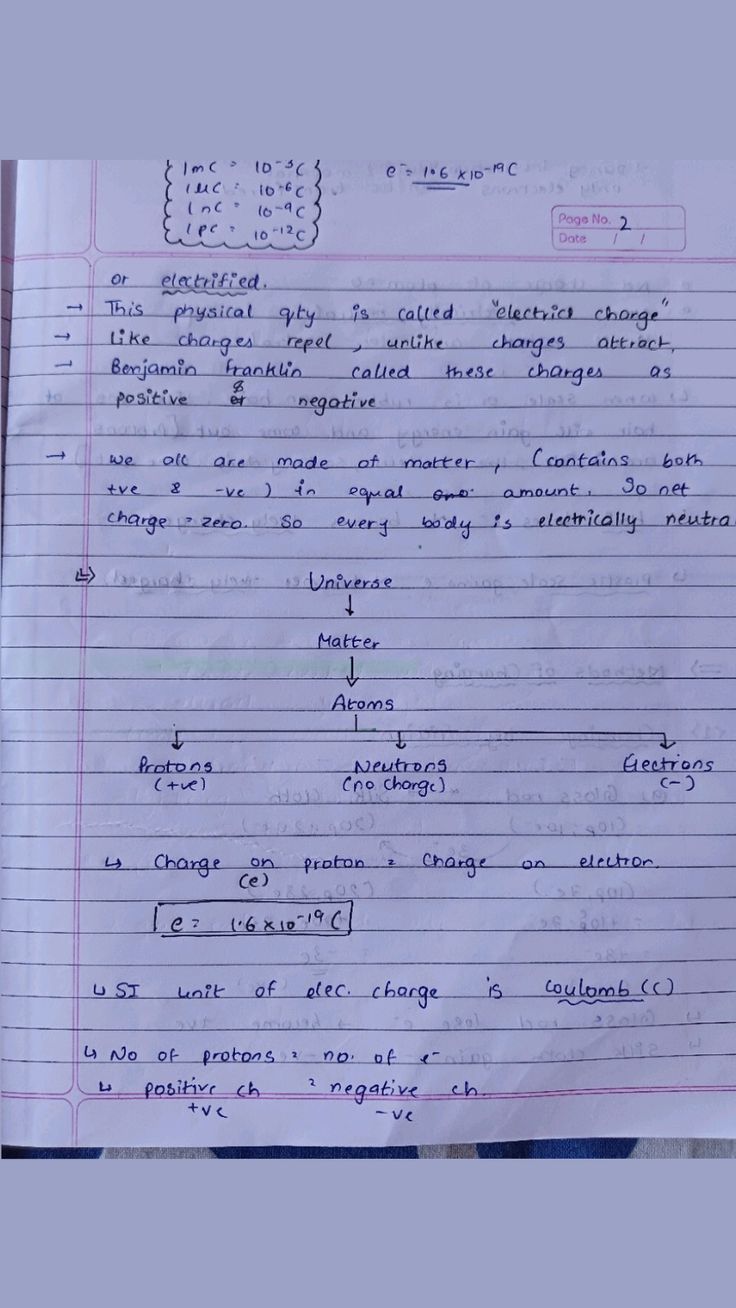 1mC = 10⁻³C
e⁻ = 1.6 × 10⁻¹⁹C
1μC = 10⁻⁶C
1nC = 10⁻⁹C
1pC = 10⁻¹²C
Page No. 2
Date / /
or electrified.
→ This physical qty is called "electrics charge"
→ Like charges repel, unlike charges attract,
→ Benjamin franklin called these charges as
positive & negative
→ we all are made of matter, (contains both
+ve & -ve) in equal amount. So net
charge = zero. So every body is electrically neutra
Universe
↓
Matter
↓
Atoms
Protons Neutrons Electrions
(+ve) (no charge) (-)
↳ Charge on proton = Charge on electron.
(e)
e = 1.6 × 10⁻¹⁹C
↳ SI unit of elec. charge is coulomb (C)
↳ No of protons = no. of e⁻
↳ positive ch = negative ch.
+ve -ve